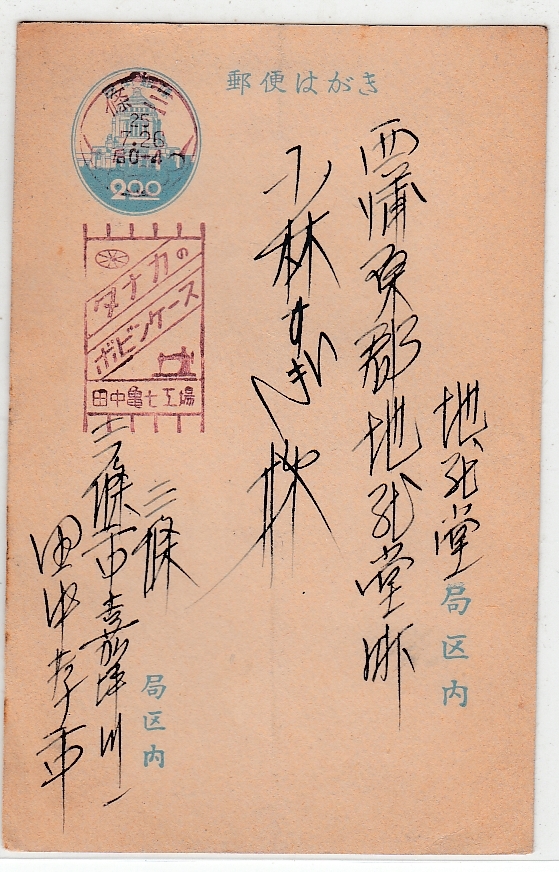 郵便はがき
三條
25
7.26
后0-4
2.00
タナカの
ボビンケース
田中亀七工場
地蔵堂
局区内
西蒲原郡地蔵堂町
小林すぎ 様
三條
局区内
三條市嘉坪川一
田中孝市